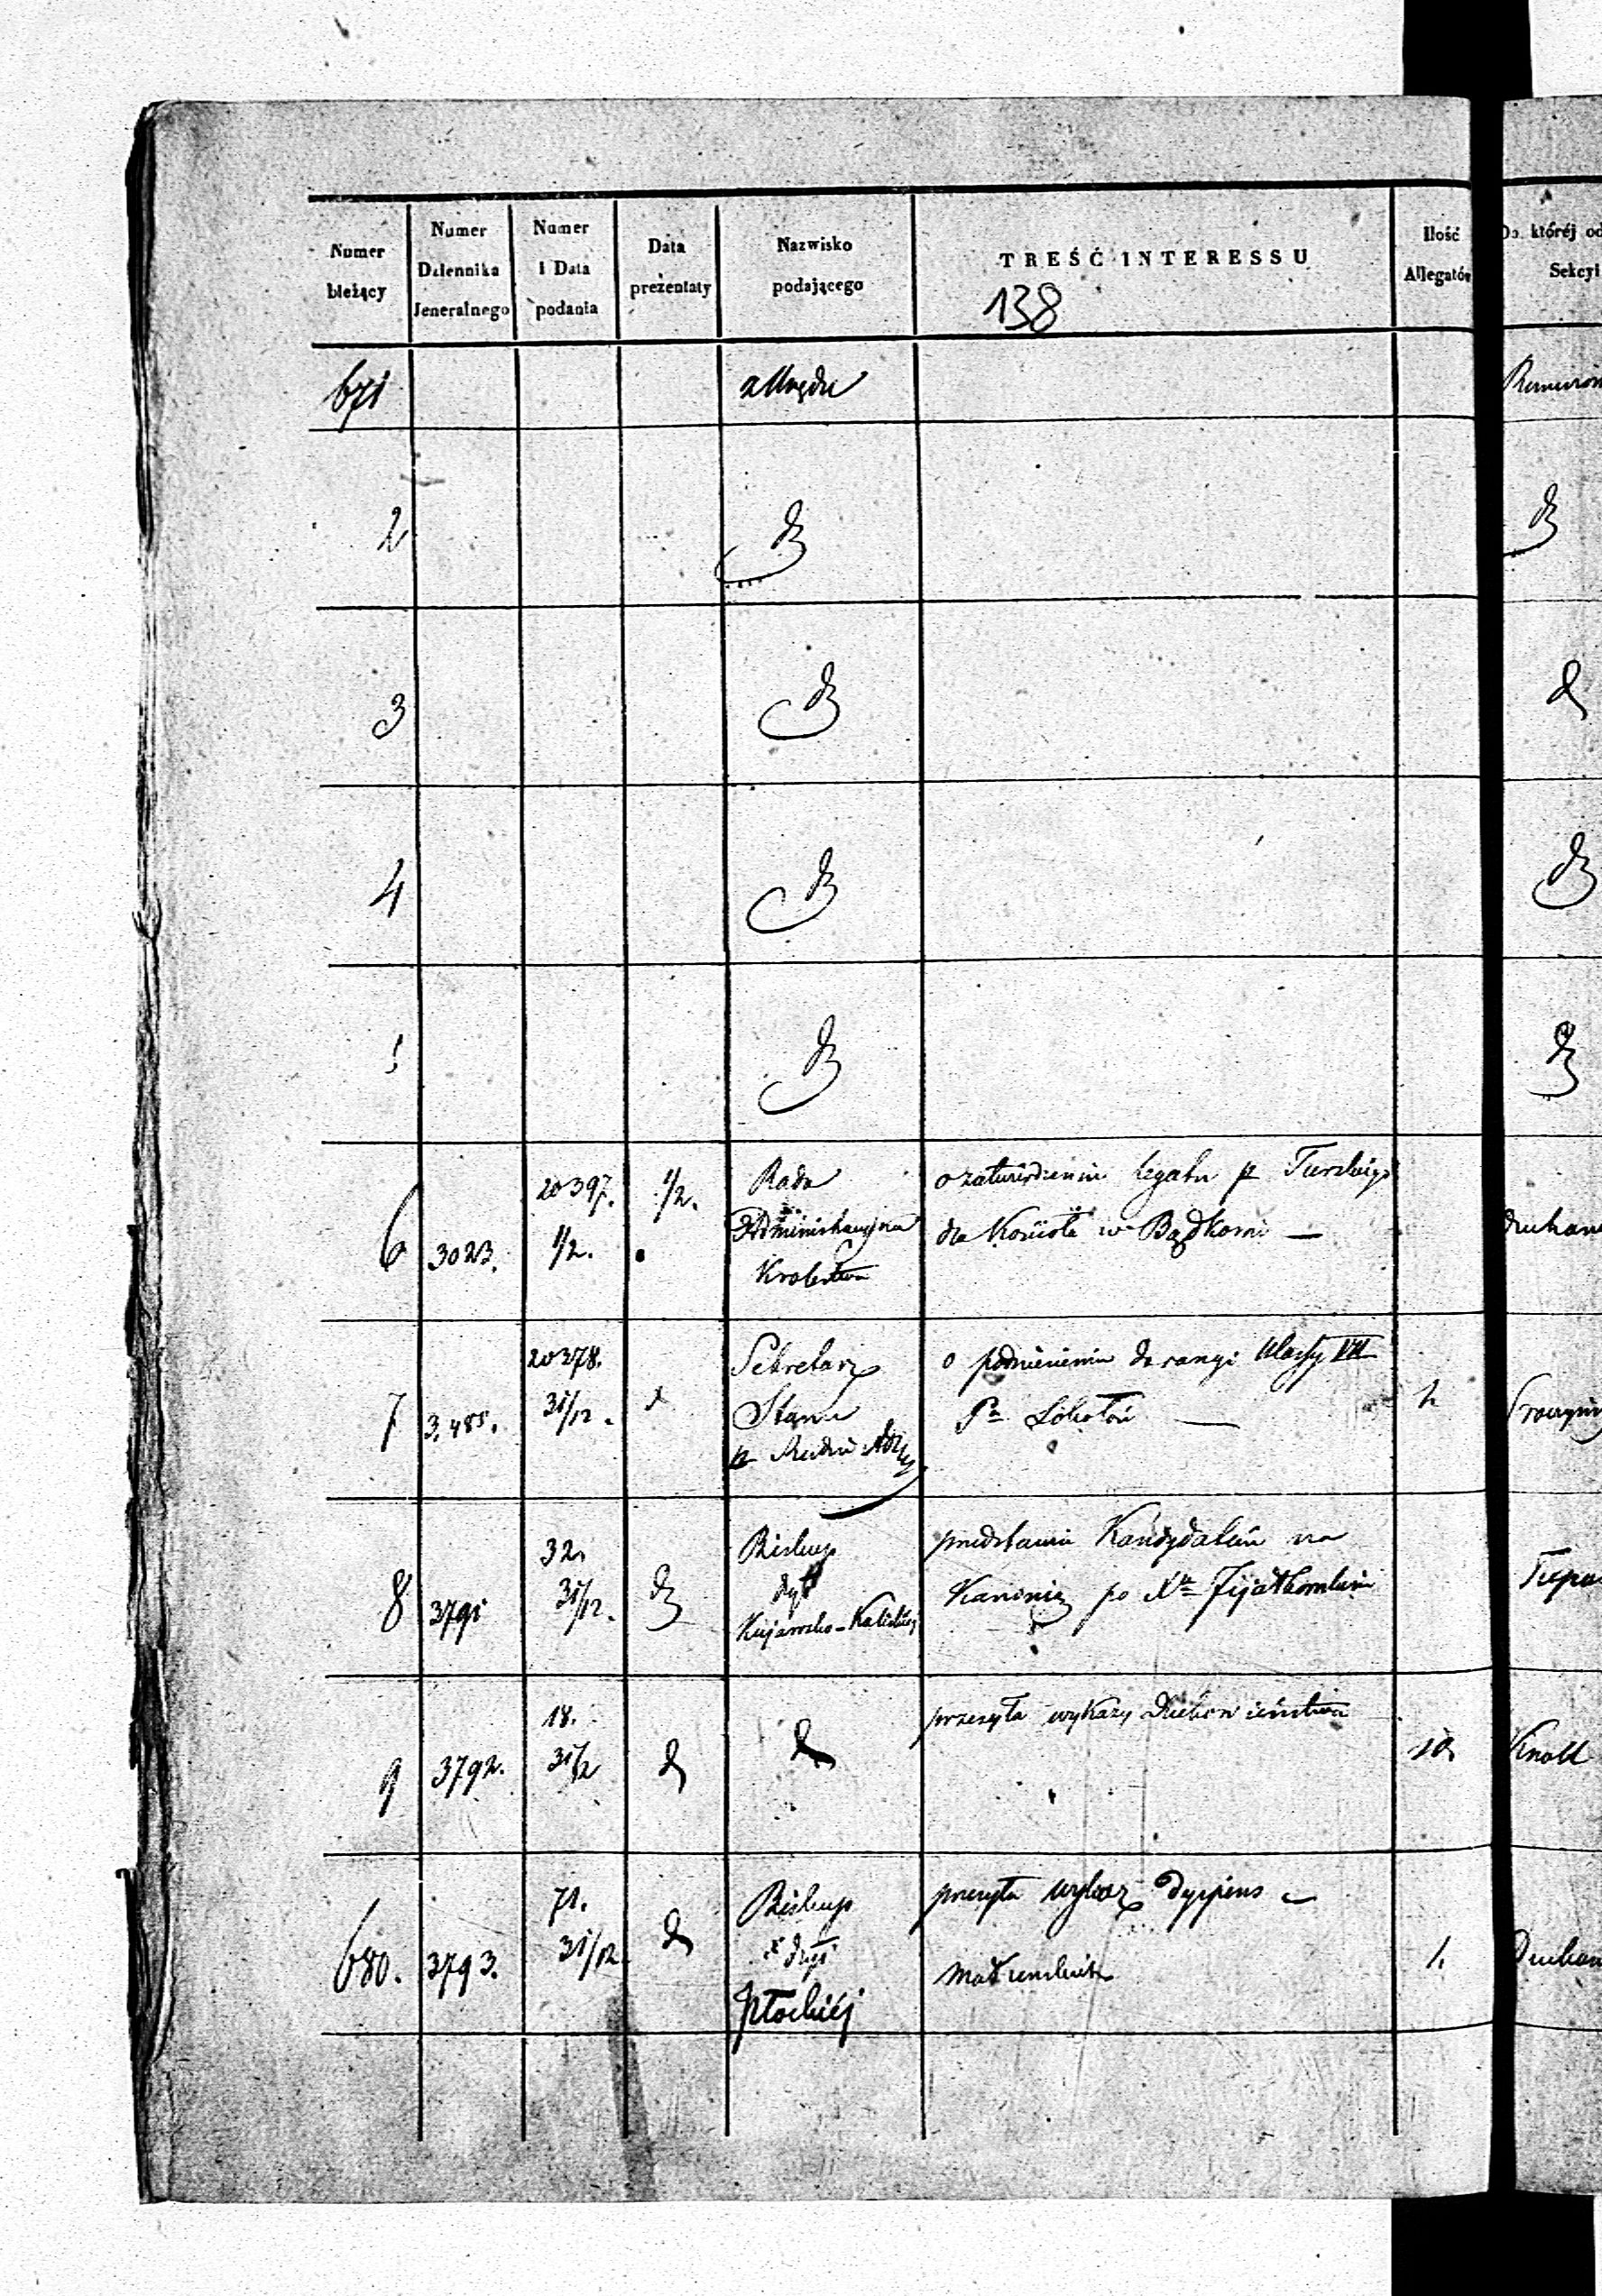 Numer bieżący
Numer Dziennika Jeneralnego
Numer i Data podania
Data prezentaty
Nazwisko podającego
TREŚĆ INTERESSU
Ilość Allegatów
Do której od
Sekcyi
138
671 z Urzędu
2 dt
3 dt
4 dt
5 dt
6 3023. 20397. 1/2. 1/2. Rada Administracyjna Królestwa
o zatwierdzeniu legatu p Turskiego
dla Kościoła w Bądkowie —
7 3,485. 20378. 31/12. Sekretarz Stanu
o podniesieniu do rangi Klassy VII
Pa
2
8 3791 32, 31/12. dt Biskup dyi Kujawsko-Kaliskiej
przedstawia Kandydatów na
Kanonią po Xu Fijałkowskim
9 3792. 18. 31/12 dt dt
przesyła wykazy Duchowieństwa
10 Knoll
680. 3793. 71. 31/12 dt Biskup dyi Płockiéj
przesyła wykaz dyspens
małżeńskich
1.